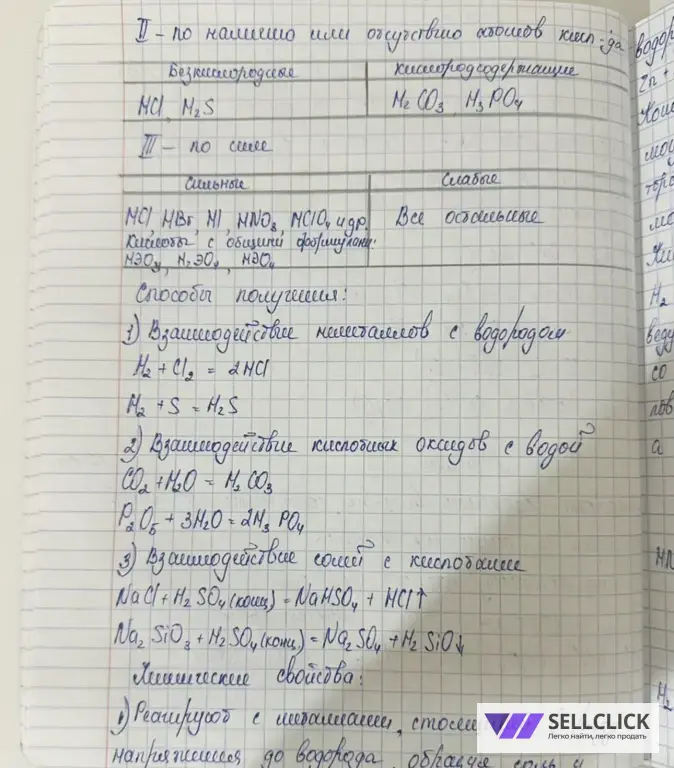 II - по наличию или отсутствию атомов кисл-да
Безкислородные
Кислородсодержащие
HCl, H₂S
H₂CO₃, H₃PO₄
III - по силе
Сильные
Слабые
HCl, HBr, HI, HNO₃, HClO₄ и др.
Все остальные
Кислоты с общими формулами:
HЭO₃, H₂ЭO₄, HЭO₄
Способы получения:
1) Взаимодействие неметаллов с водородом
H₂ + Cl₂ = 2HCl
H₂ + S = H₂S
2) Взаимодействие кислотных оксидов с водой
CO₂ + H₂O = H₂CO₃
P₂O₅ + 3H₂O = 2H₃PO₄
3) Взаимодействие солей с кислотами
NaCl + H₂SO₄(конц) = NaHSO₄ + HCl↑
Na₂SiO₃ + H₂SO₄(конц) = Na₂SO₄ + H₂SiO↓
Химические свойства:
1) Реагируют с металлами,
напряжения до водорода, образуя соль и
водор
Zn +
H₂
веду
со
а
H₂
SELLCLICK
Легко найти, легко продать